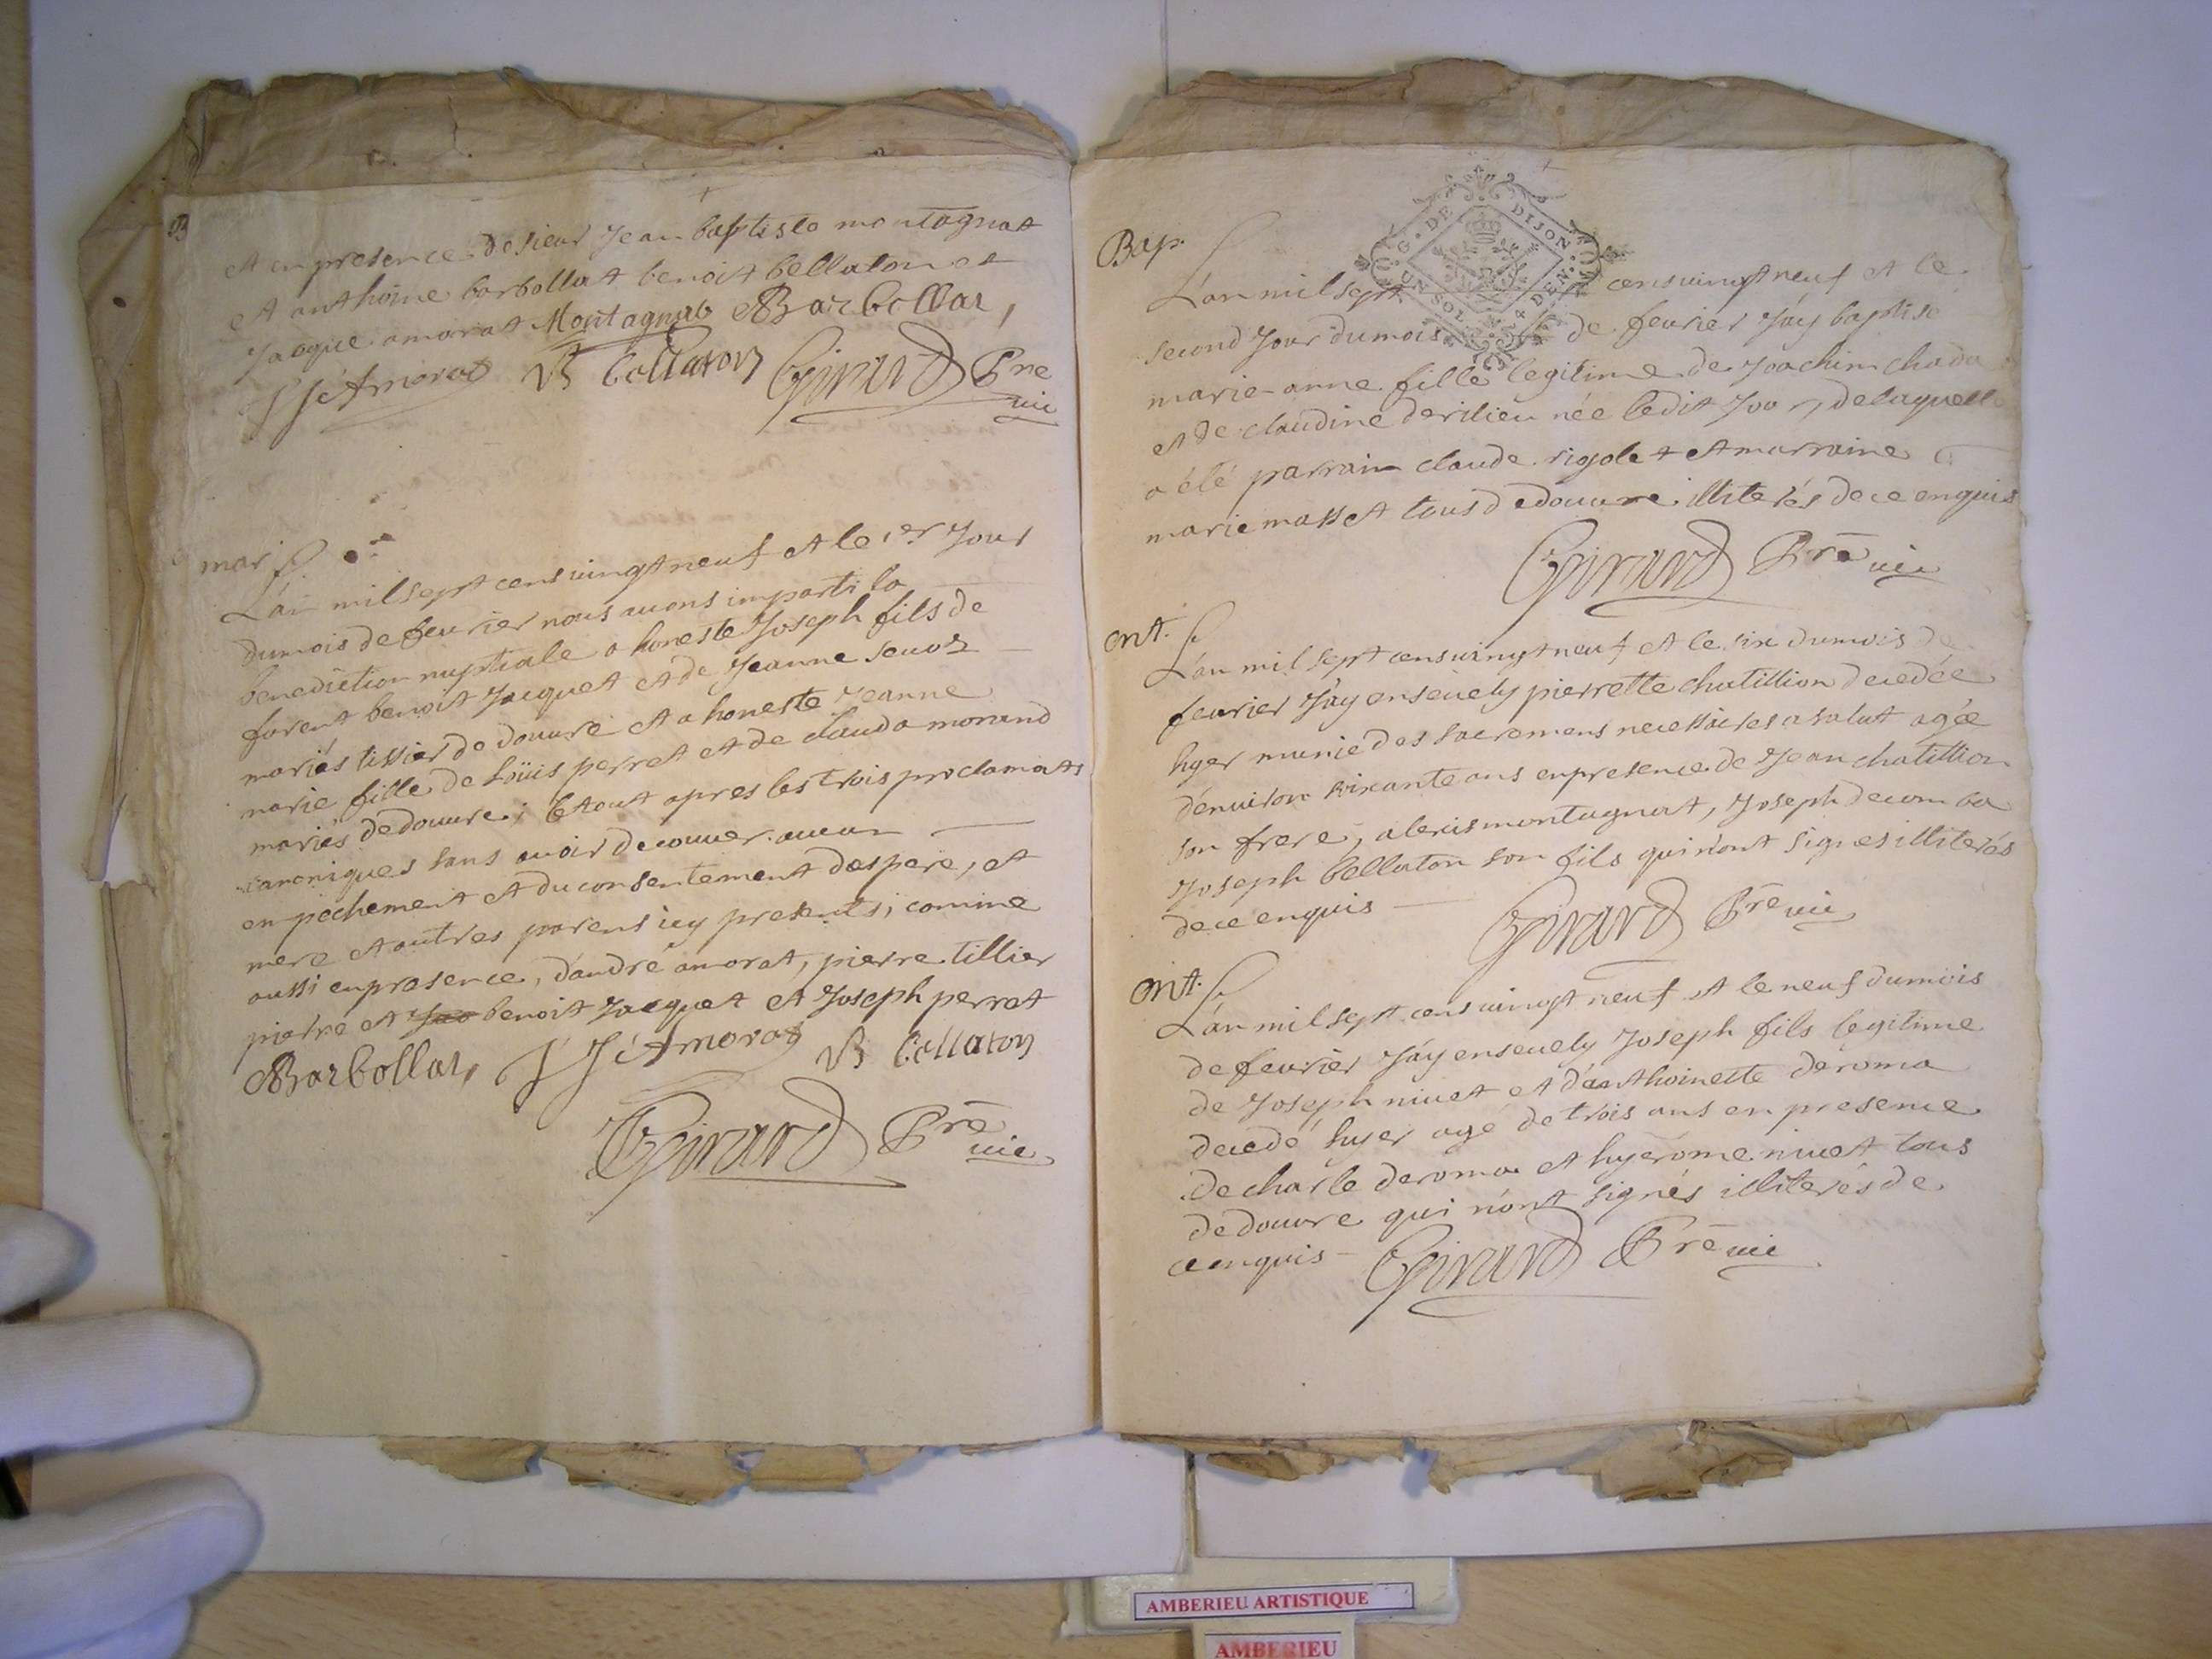 B
et en presence de sieur Jean baptiste montagnat
et anthoine barbollat benoit bellaton et
Jacque amorat Montagnat Barbollat,
J Je Amorat B bellaton Girard Pre
vic
mar
L'an mil sept cens vingt neuf et le 1er Jour
du mois de fevrier nous avons imparti la
benediction nuptiale a honeste Joseph fils de
benoit Jacquet et de Jeanne
mariés tissier de douvre et a honeste Jeanne
marie fille de Loüis perret et de clauda morand
mariés de douvre; le tout apres les trois proclamats
canoniques sans avoir decouver aucun
enpechement et du consentement des pere, et
mere et autres parens icy presents; comme
aussi en presence, d'andré amorat, pierre tillier
pierre et benoit Jacquet et Joseph perret
Barbollat, J Je Amorat B bellaton
Girard Pre
vic
G. DE DIJON
UN SOL 4 DEN.
Bap.
L'an mil sept cens vingt neuf et le
second Jour du mois de fevrier J'ay baptisé
marie anne fille legitime de Joachim
et de claudine derilieu née ledit Jour, de laquelle
a été parrain claude rigolet et marraine
marie masset tous de douvre illiterés de ce enquis
Girard Pre vic
ent.
L'an mil sept cens vingt neuf et le six du mois de
fevrier J'ay ensevely pierrette chatillion decedée
hyer munie des sacremens necessaires a salut agée
d'environ soixante ans en presence de Jean chatillion
son frere, alexis montagnat, Joseph decomba
Joseph bellaton son fils qui n'ont signes illiterés
de ce enquis
Girard Pre vic
ent.
L'an mil sept cens vingt neuf et le neuf du mois
de fevrier J'ay ensevely Joseph fils legitime
de Joseph nivet et d'anthoinette deroma
decedé hyer agé de trois ans en presence
de charle deroma et hyerome nivet tous
de douvre qui n'ont signés illiterés de
ce enquis Girard Pre vic
AMBERIEU ARTISTIQUE
AMBERIEU